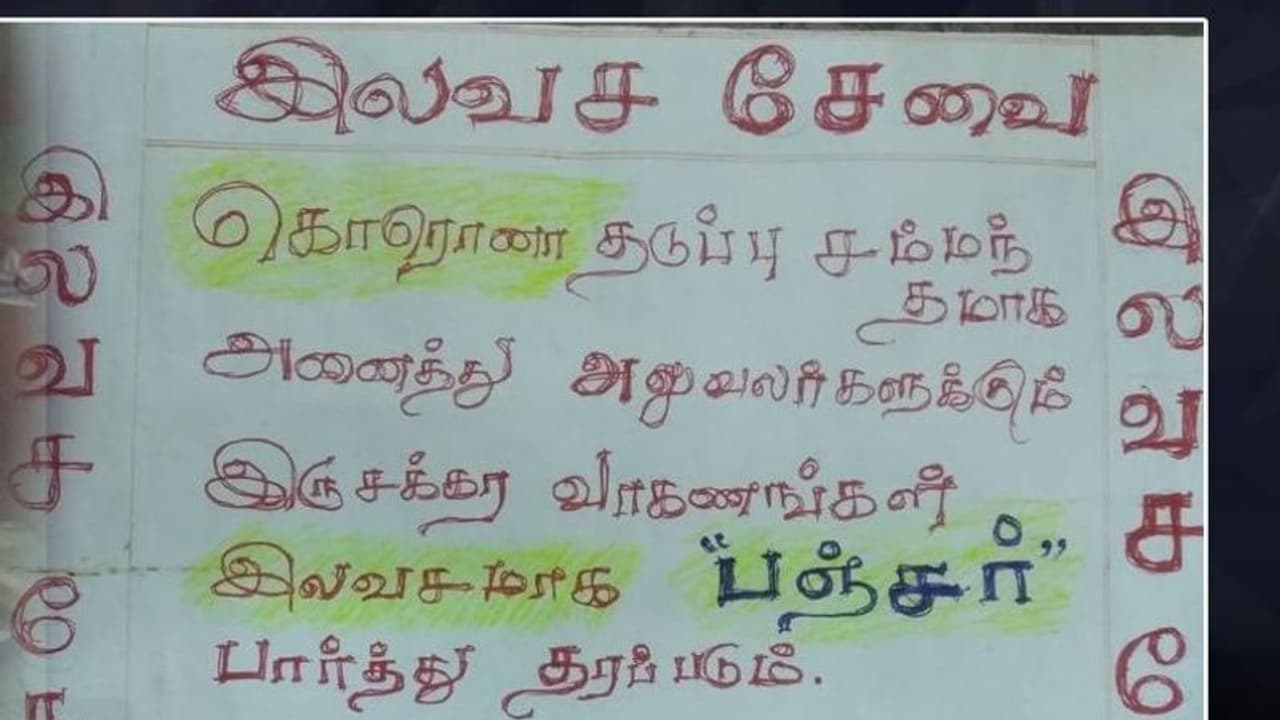 இலவச சேவை
கொரொணா தடுப்பு சம்மந்
தமாக
அனைத்து அலுவலர்களுக்கும்
இரு சக்கர வாகணங்கள்
இலவசமாக "பஞ்சர்"
பார்த்து தரப்படும்.
இ
ல
வ
ச
சே
இ
ல
வ
ச